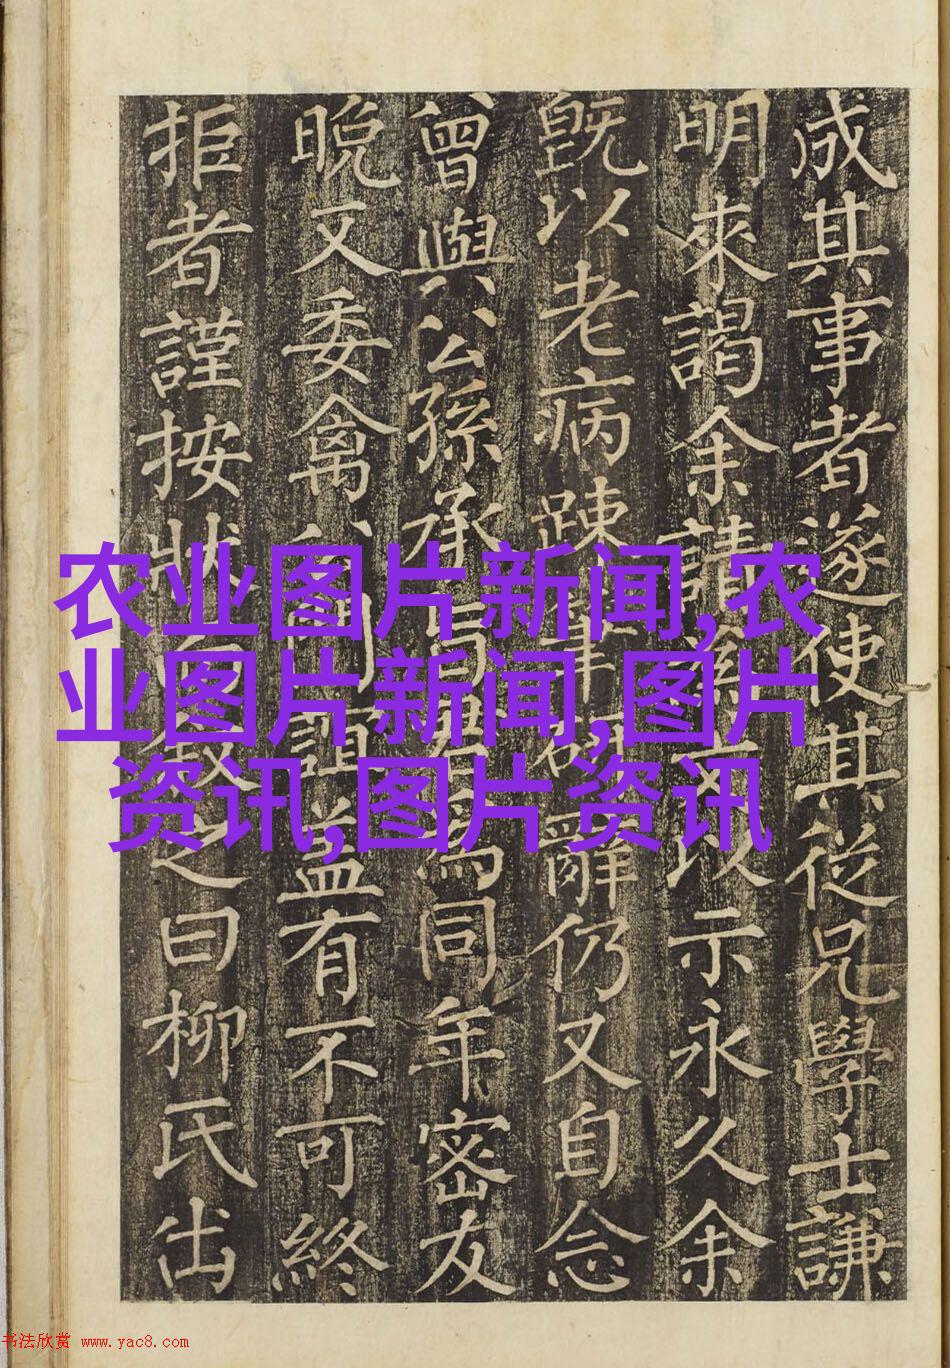 成其事者遂使其從兄學士謙
明來謁余請以示永久余
旣以老病踈筆硯辭仍又自念
曾與公孫承旨君爲同年密友
晚又委禽公門誼盖有不可終
拒者謹按狀而敍之曰柳氏出
农业图片新闻,农
业图片新闻,图片
资讯,图片资讯
书法欣赏 www.yac8.com